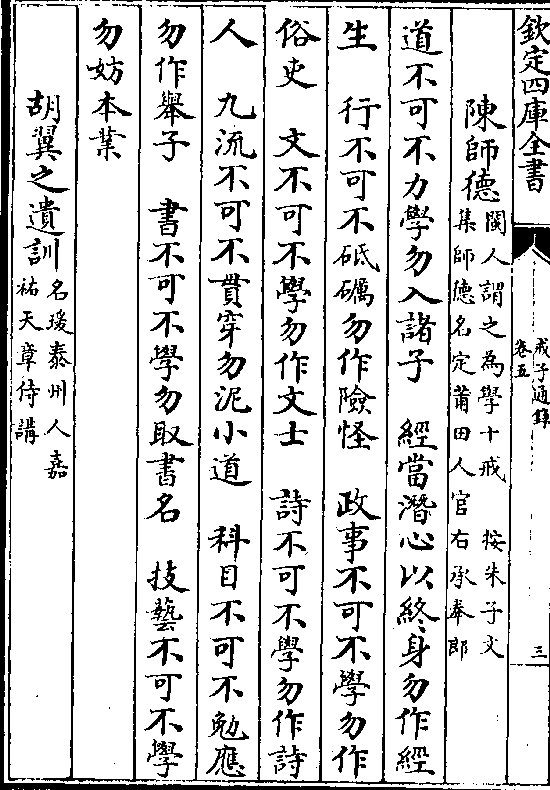 欽定四庫全書
戒子通錄
卷五
三
陳師德閩人謂之為學十戒　按朱子文
集師德名定莆田人官右承奉郎
道不可不力學勿入諸子　經當潛心以終身勿作經
生　行不可不砥礪勿作險怪　政事不可不學勿作
俗吏　文不可不學勿作文士　詩不可不學勿作詩
人　九流不可不貫穿勿泥小道　科目不可不勉應
勿作舉子　書不可不學勿取書名　技藝不可不學
勿妨本業
胡翼之遺訓名瑗泰州人嘉
祐天章侍講